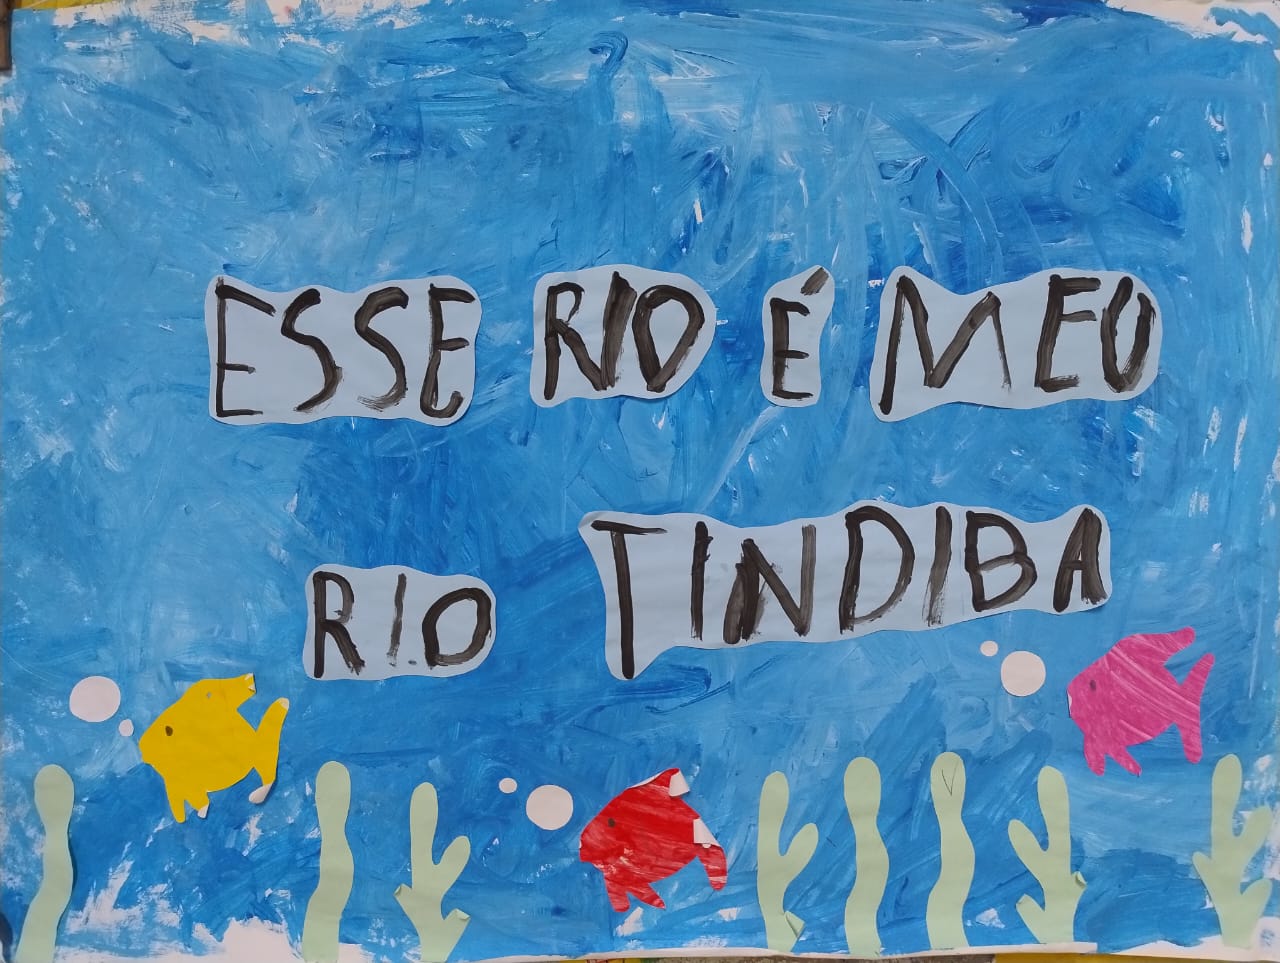 ESSE RIO É MEU
RIO TINDIBA